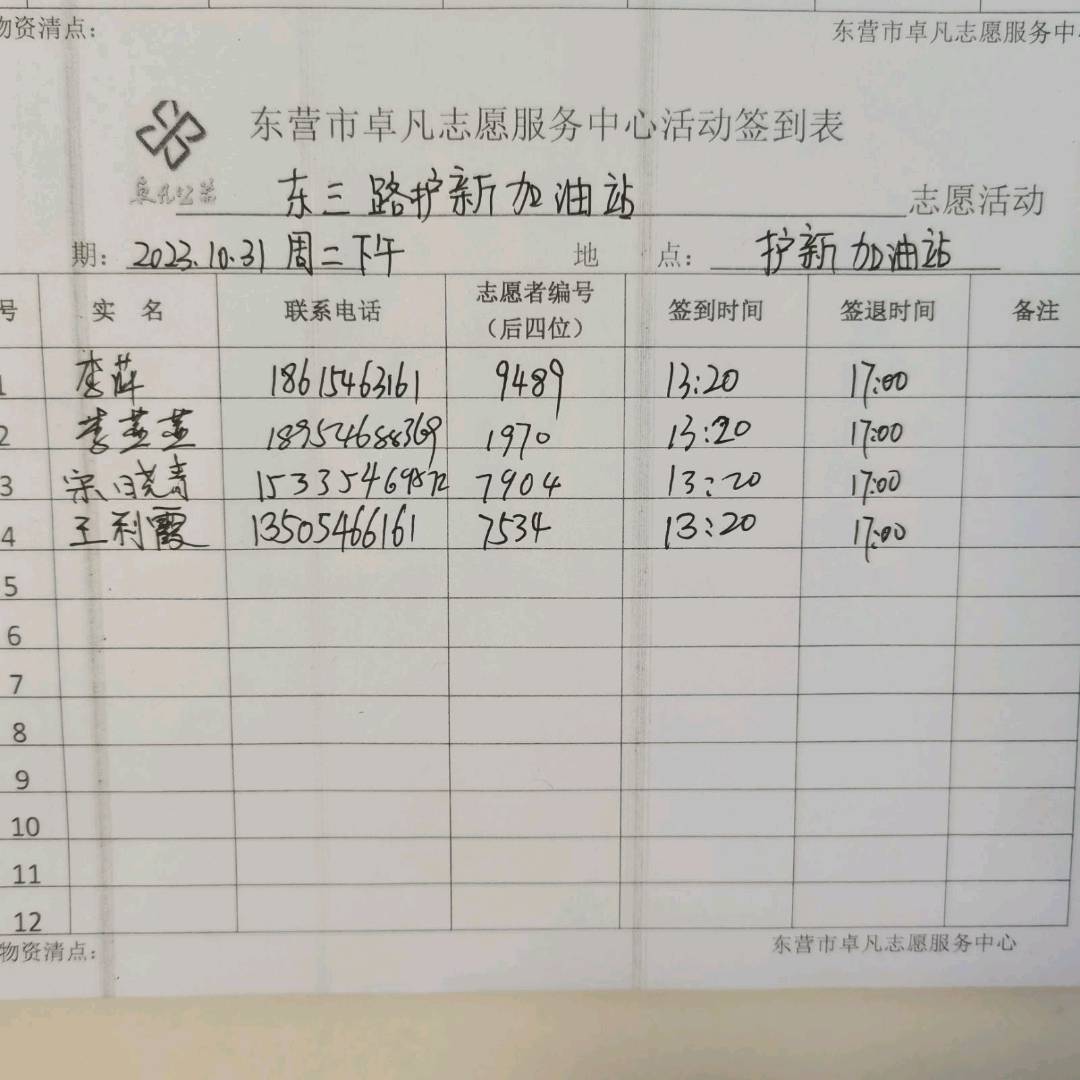 物资清点：
东营市卓凡志愿服务中
东营市卓凡志愿服务中心活动签到表
卓凡公益
东三路护新加油站 志愿活动
期： 2023.10.31 周二下午 地 点： 护新加油站
号 实 名 联系电话 志愿者编号（后四位） 签到时间 签退时间 备注
1 李萍 18615463161 9489 13:20 17:00
2 李燕燕 18954688369 1970 13:20 17:00
3 宗晓青 15335469872 7904 13:20 17:00
4 王利霞 13505466161 7534 13:20 17:00
5
6
7
8
9
10
11
12
物资清点：
东营市卓凡志愿服务中心